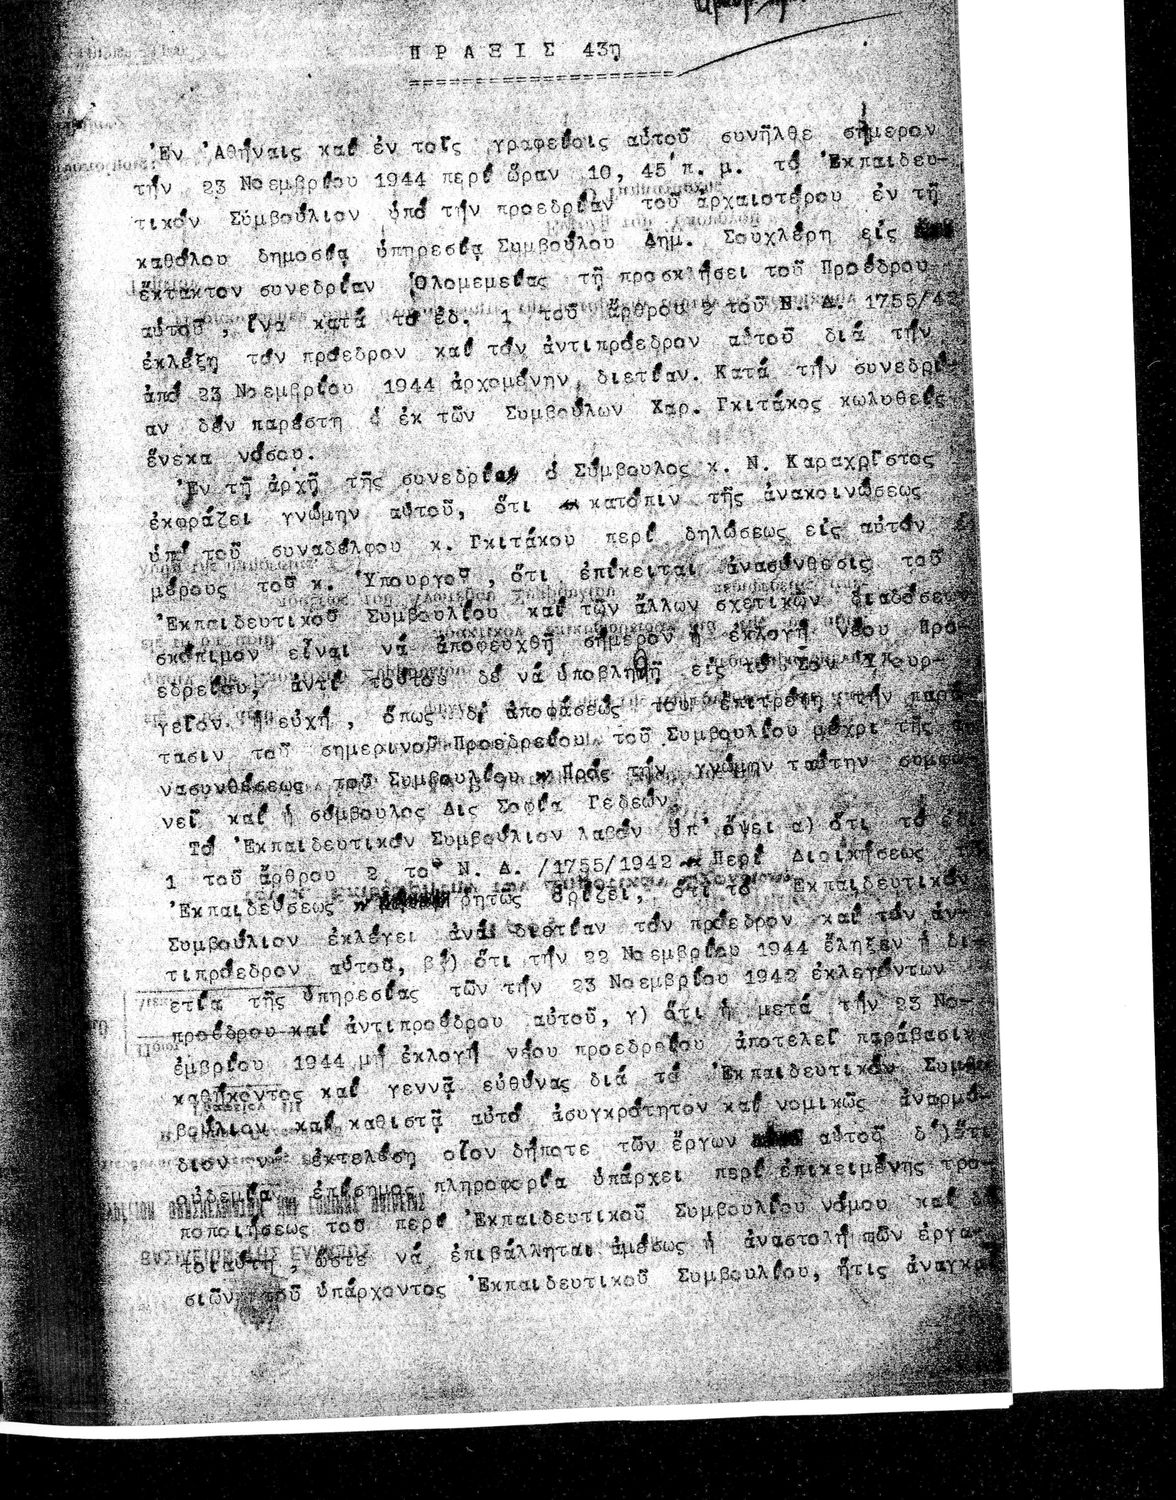 ΠΡΑΞΙΣ 43η
Ἐν Ἀθήναις καί ἐν τοῖς γραφείοις αὐτοῦ συνῆλθε σήμερον
τήν 23 Νοεμβρίου 1944 περί ὥραν 10, 45 π. μ. τό Ἐκπαιδευ-
τικόν Συμβούλιον ὑπό τήν προεδρίαν τοῦ ἀρχαιοτέρου ἐν τῇ
καθόλου δημοσίᾳ ὑπηρεσίᾳ Συμβούλου Δημ. Σουχλέρη εἰς
ἔκτακτον συνεδρίαν Ὁλομεμείας τῇ προσκλήσει τοῦ Προέδρου
αὐτοῦ, ἵνα κατά τό ἐδ. 1 τοῦ ἄρθρου 2 τοῦ Ν. Δ. 1755/42
ἐκλέξη τόν πρόεδρον καί τόν ἀντιπρόεδρον αὐτοῦ διά τήν
ἀπό 23 Νοεμβρίου 1944 ἀρχομένην, διετίαν. Κατά τήν συνεδρί-
αν δέν παρέστη ὁ ἐκ τῶν Συμβούλων Χαρ. Γκιτάκος κωλυθείς
ἕνεκα νόσου.
Ἐν τῇ ἀρχῇ τῆς συνεδρίας ὁ Σύμβουλος κ. Ν. Καραχρίστος
ἐκφράζει γνώμην αὐτοῦ, ὅτι κατόπιν τῆς ἀνακοινώσεως
ὑπό τοῦ συναδέλφου κ. Γκιτάκου περί δηλώσεως εἰς αὐτόν
μέρους τοῦ κ. Ὑπουργοῦ, ὅτι ἐπίκειται ἀνασύνθεσις τοῦ
Ἐκπαιδευτικοῦ Συμβουλίου καί τῶν ἄλλων σχετικῶν διαδόσεων
σκόπιμον εἶναι νά ἀποφευχθῇ σήμερον ἡ ἐκλογή νέου Προ-
εδρείου, ἀντί τούτου δέ νά ὑποβληθῇ εἰς τό Σον Ὑπουρ-
γεῖον ἡ εὐχή, ὅπως δι' ἀποφάσεώς του ἐπιτρέψῃ τήν παρά
τασιν τοῦ σημερινοῦ Προεδρείου τοῦ Συμβουλίου μέχρι τῆς
νασυνθέσεως τοῦ Συμβουλίου " Πρός τήν γνώμην ταύτην συμφω
νεῖ καί ἡ σύμβουλος Δις Σοφία Γεδεών.
Τό Ἐκπαιδευτικόν Συμβούλιον λαβόν ὑπ' ὄψει α) ὅτι τό ἐδ.
1 τοῦ ἄρθρου 2 τοῦ Ν. Δ. /1755/1942 " Περί Διοικήσεως
Ἐκπαιδεύσεως " ρητῶς ὁρίζει, ὅτι τό Ἐκπαιδευτικόν
Συμβούλιον ἐκλέγει ἀνά διετίαν τόν πρόεδρον καί τόν ἀν-
τιπρόεδρον αὐτοῦ, β) ὅτι τήν 22 Νοεμβρίου 1944 ἔληξεν ἡ δι-
ετία τῆς ὑπηρεσίας τῶν τήν 23 Νοεμβρίου 1942 ἐκλεγέντων
προέδρου καί ἀντιπροέδρου αὐτοῦ, γ) ὅτι ἡ μετά τήν 23 Νο-
εμβρίου 1944 μή ἐκλογή νέου προεδρείου ἀποτελεῖ παράβασιν
καθήκοντος καί γεννᾷ εὐθύνας διά τό Ἐκπαιδευτικόν Συμ
βούλιον καί καθιστᾷ αὐτό ἀσυγκρότητον καί νομικῶς ἀναρμό-
διον νά ἐκτελέσῃ οἷον δήποτε τῶν ἔργων αὐτοῦ δ') ὅτι
οὐδεμία ἐπίσημος πληροφορία ὑπάρχει περί ἐπικειμένης τρο-
ποποιήσεως τοῦ περί Ἐκπαιδευτικοῦ Συμβουλίου νόμου καί δή
τοιαύτη, ὥστε νά ἐπιβάλληται ἀμέσως ἡ ἀναστολή τῶν ἐργα-
σιῶν τοῦ ὑπάρχοντος Ἐκπαιδευτικοῦ Συμβουλίου, ἥτις ἀναγκ